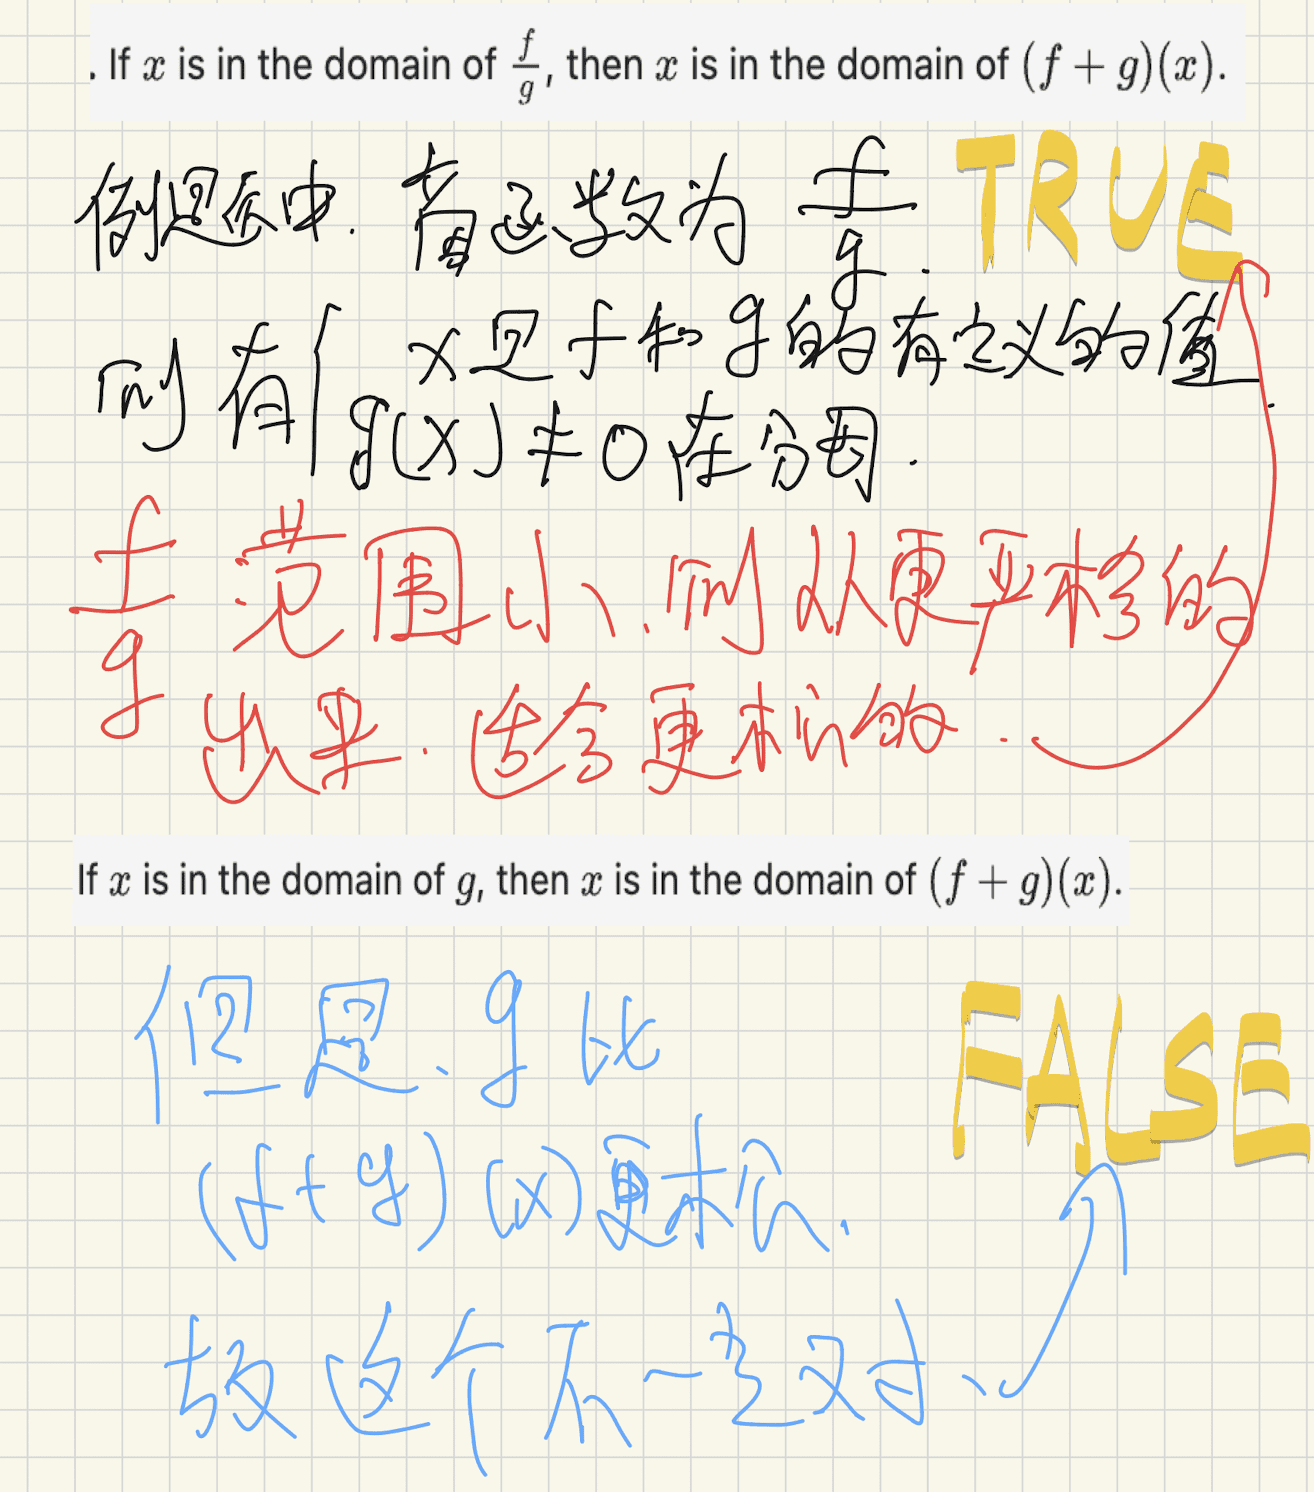 . If x is in the domain of f/g, then x is in the domain of (f + g)(x).
例题中. 有函数为 f/g. TRUE
则有{ x是f和g的有定义的值.
g(x)≠0 在分母.
f/g 范围小、则从更严格的
出来. 适合更松的.
If x is in the domain of g, then x is in the domain of (f + g)(x).
但是、g比 FALSE
(f+g)(x)更松.
故这个不一定对、